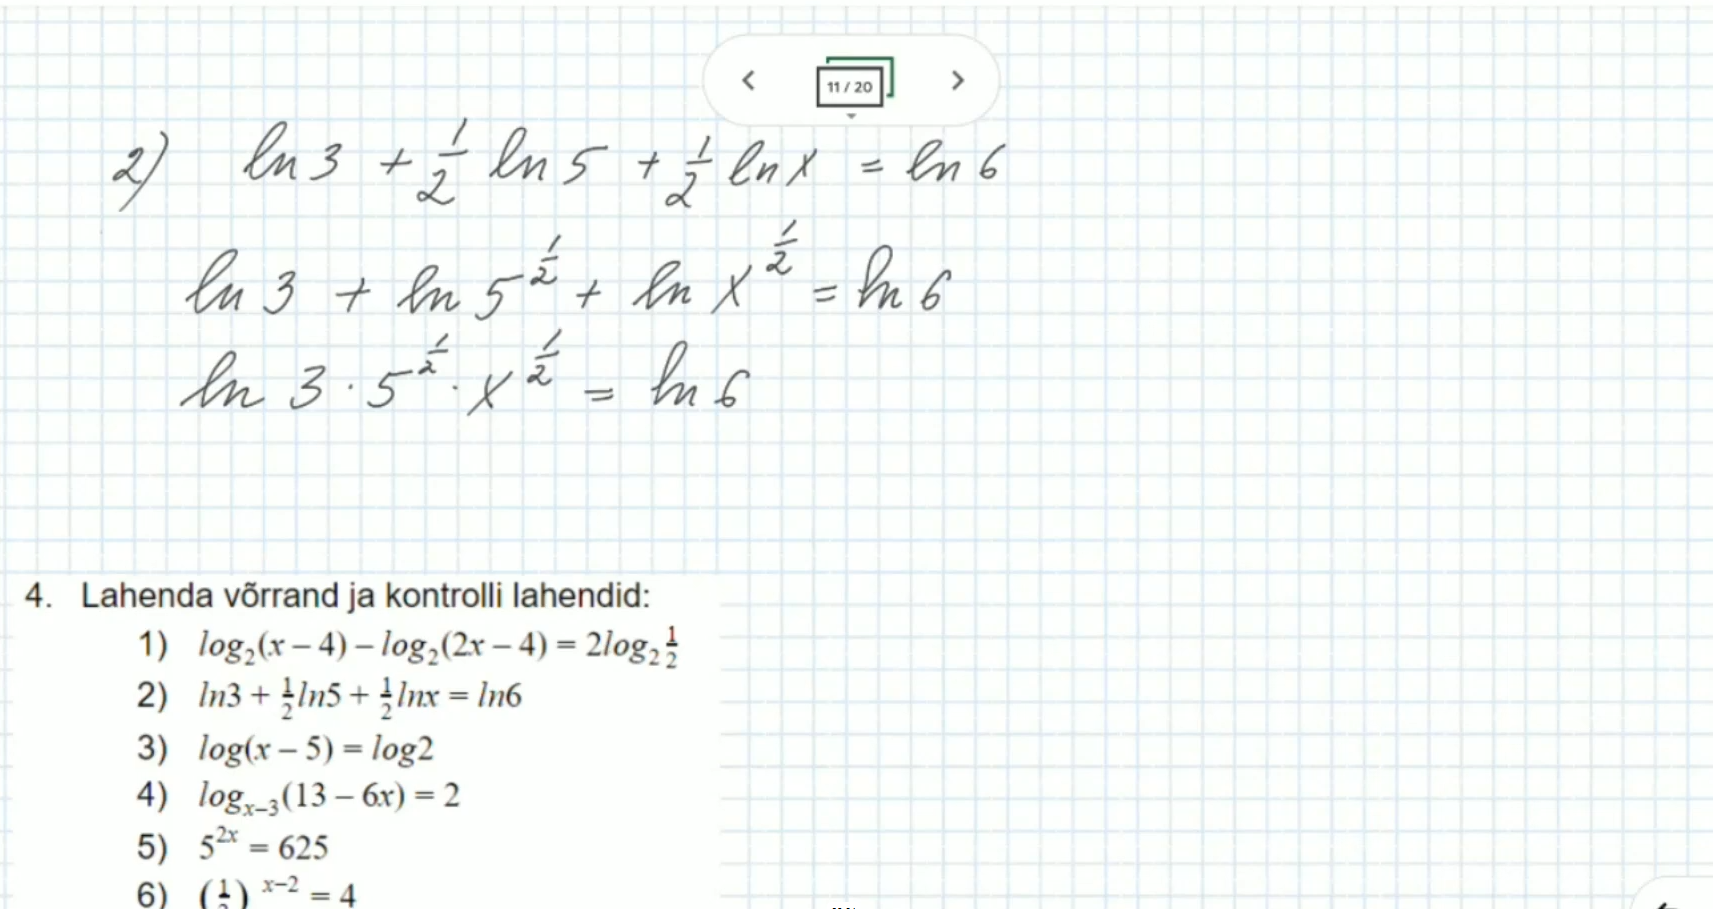 11 / 20
2) ln 3 + 1/2 ln 5 + 1/2 ln x = ln 6
ln 3 + ln 5^(1/2) + ln x^(1/2) = ln 6
ln 3 · 5^(1/2) · x^(1/2) = ln 6
4. Lahenda võrrand ja kontrolli lahendid:
1) log₂(x – 4) – log₂(2x – 4) = 2log₂ 1/2
2) ln3 + 1/2 ln5 + 1/2 lnx = ln6
3) log(x – 5) = log2
4) logₓ₋₃(13 – 6x) = 2
5) 5^(2x) = 625
6) (1/ )^(x–2) = 4